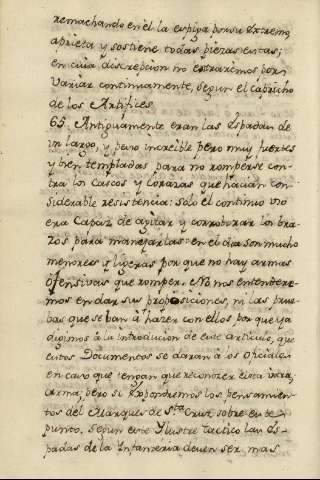 remachando en él la espiga por su extremo
aprieta y sostiene todas piezas estas,
en cuia discrepcion no entraremos por
variar continuamente, segun el capricho
de los Artifices
65. Antiguamente eran las Espadas de
un largo, y peso increible pero muy fuertes
y bien templadas para no romperse con-
tra los Cascos y Corazas que hacian con-
siderable resistencia: solo el continuo uso
era Capaz de agitar y corroborar los bra-
zos para manejarlas en el dia son mucho
menores y ligeras por que no hay armas
ofensivas que romper. No nos entendere-
mos en dar sus proposiciones, ni las prue-
bas que se han á hazer con ellos, por que ya
digimos á la introduccion de este Articulo, que
estos Documentos se daran á los oficiales
en caso que tengan que reconozer esta
arma; pero si expondremos los pensamien-
tos del Marques de Sta Cruz sobre este
punto. Segun este Ylustre tactico las Es-
padas de la Infanteria deven ser mas